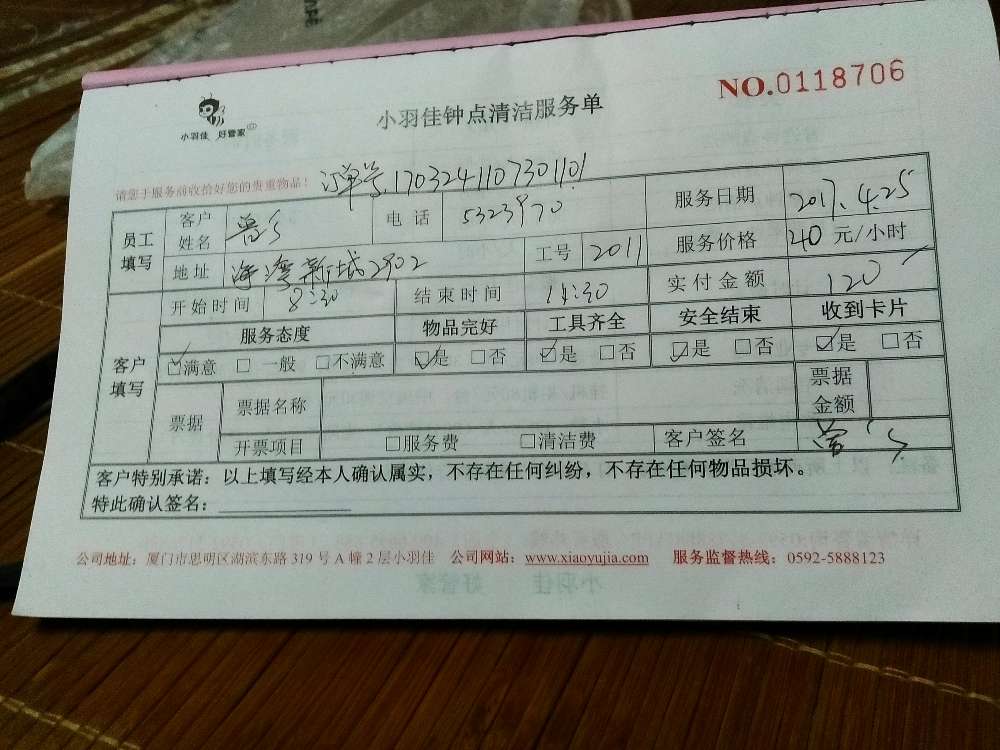 NO.0118706
小羽佳 好管家
小羽佳钟点清洁服务单
请您于服务前收拾好您的贵重物品！ 订单号1703241107301101
员工填写 客户姓名 电话 5323970 服务日期 2017.4.25
地址 海湾新城2902 工号 2011 服务价格 40 元/小时
客户填写 开始时间 8:30 结束时间 11:30 实付金额 120
服务态度 物品完好 工具齐全 安全结束 收到卡片
☑满意 □一般 □不满意 ☑是 □否 ☑是 □否 ☑是 □否 ☑是 □否
票据 票据名称 票据金额
开票项目 □服务费 □清洁费 客户签名
客户特别承诺：以上填写经本人确认属实，不存在任何纠纷，不存在任何物品损坏。
特此确认签名：
公司地址：厦门市思明区湖滨东路 319 号 A 幢 2 层小羽佳 公司网站：www.xiaoyujia.com 服务监督热线：0592-5888123